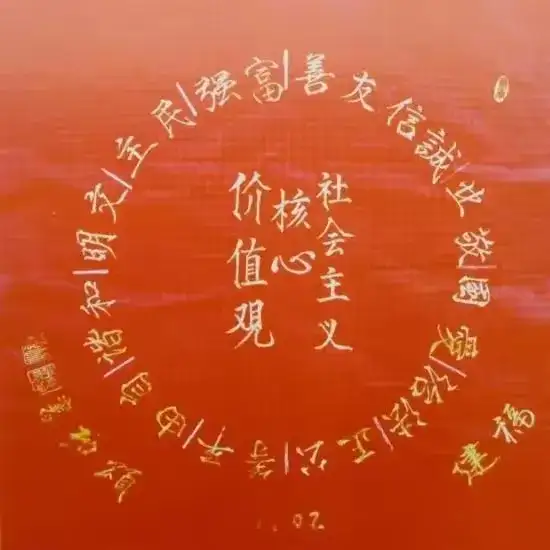 社会主义
核心
价值观
富强|民主|文明|和谐
自由
平等|公正|法治|爱國|敬业
誠信
友善|
福建